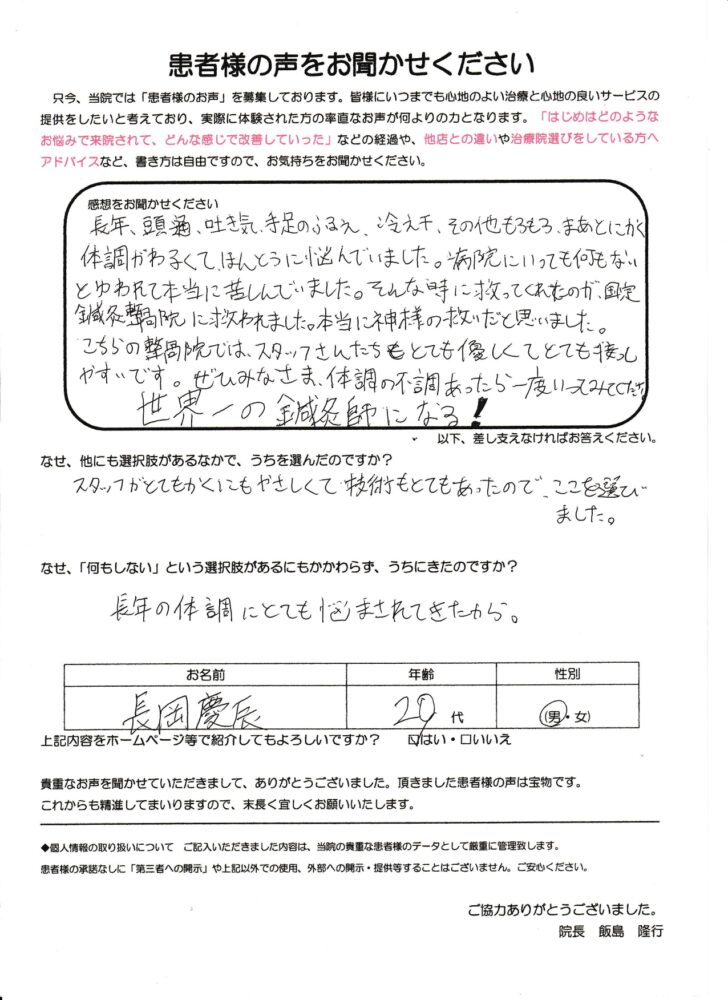 患者様の声をお聞かせください
只今、当院では「患者様のお声」を募集しております。皆様にいつまでも心地のよい治療と心地の良いサービスの
提供をしたいと考えており、実際に体験された方の率直なお声が何よりの力となります。「はじめはどのような
お悩みで来院されて、どんな感じで改善していった」などの経過や、他店との違いや治療院選びをしている方へ
アドバイスなど、書き方は自由ですので、お気持ちをお聞かせください。
感想をお聞かせください
長年、頭通、吐き気、手足のふるえ、冷え、その他もろもろ、まあとにかく
体調がわるくて、ほんとうに悩んでいました。病院にいっても何もない
とゆわれて本当に苦しんでいました。そんな時に救ってくれたのが、
鍼灸整骨院に救われました。本当に神様の救いだと思いました。
こちらの整骨院では、スタッフさんたちもとても優しくてとても接っし
やすいです。ぜひみなさま、体調の不調あったら一度いってみてください
世界一の鍼灸師になる！
以下、差し支えなければお答えください。
なぜ、他にも選択肢があるなかで、うちを選んだのですか？
スタッフがとてもかくにもやさしくて技術もとてもあったので、ここを選び
ました。
なぜ、「何もしない」という選択肢があるにもかかわらず、うちにきたのですか？
長年の体調にとても悩まされてきたから。
お名前 年齢 性別
長岡慶辰 20代 (男・女)
上記内容をホームページ等で紹介してもよろしいですか？ ☑はい・□いいえ
貴重なお声を聞かせていただきまして、ありがとうございました。頂きました患者様の声は宝物です。
これからも精進してまいりますので、末長く宜しくお願いいたします。
◆個人情報の取り扱いについて ご記入いただきました内容は、当院の貴重な患者様のデータとして厳重に管理致します。
患者様の承諾なしに「第三者への開示」や上記以外での使用、外部への開示・提供等することはございません。ご安心ください。
ご協力ありがとうございました。
院長 飯島 隆行